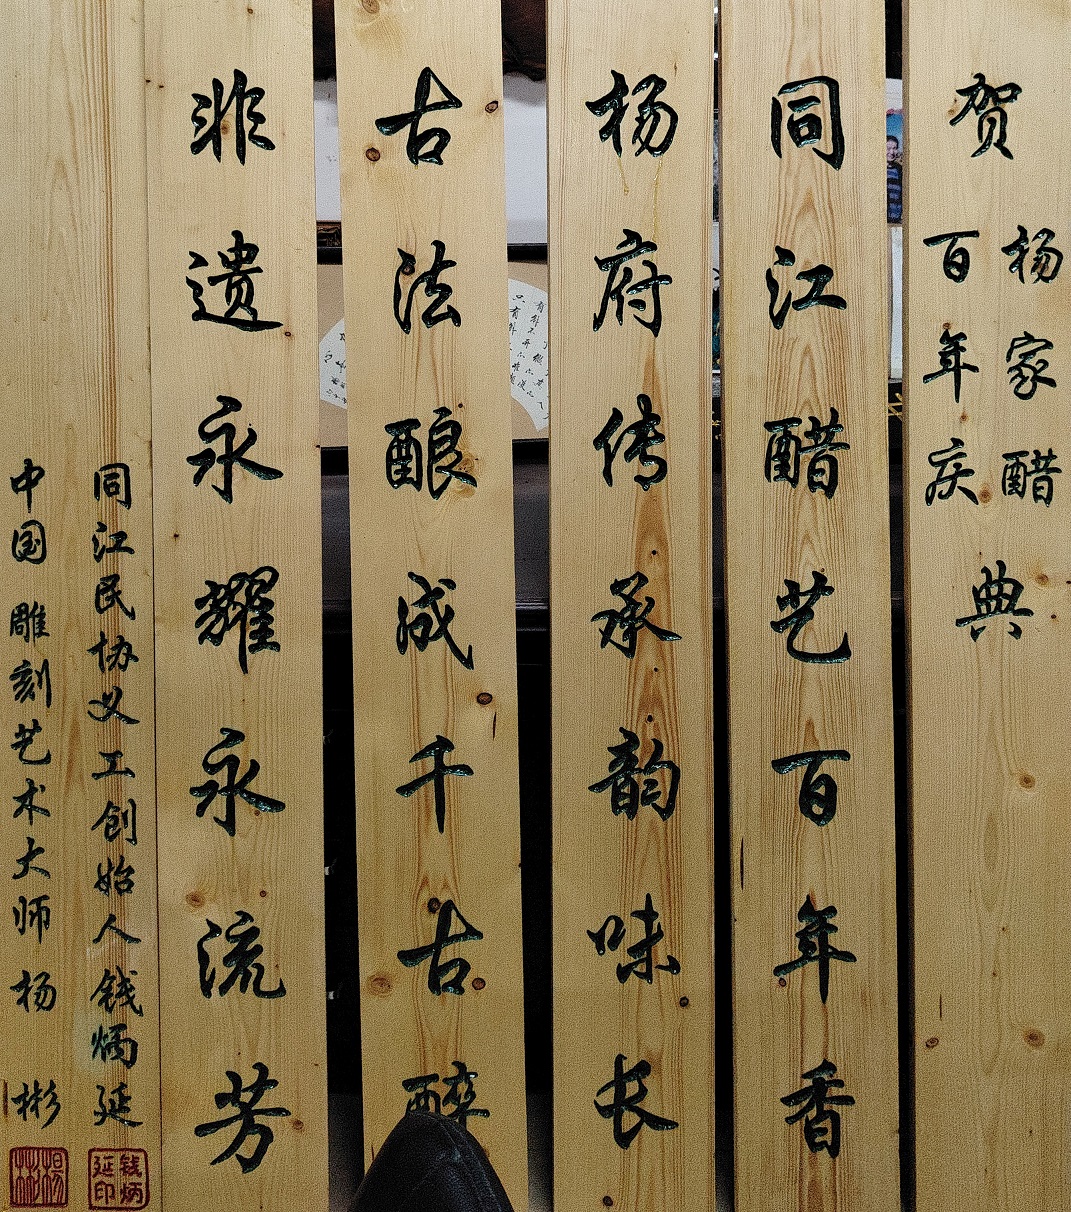 贺
杨家醋
百年庆
典
同江醋艺百年香
杨府传承韵味长
古法酿成千古醉
非遗永耀永流芳
同江民协义工创始人钱炳延
中国雕刻艺术大师杨彬
钱炳延印
杨彬